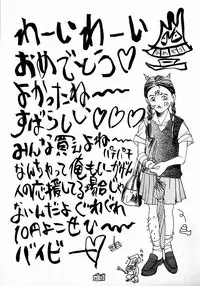 わーいわーい
おめでとう♡
よかったね〜〜
すばらしい♡♡♡
みんな買えよね〜〜
パチパチ
なんちゃって俺もいーかげん
人の応援してる場合じゃ
ないんだよぐれぐれ
10円よこせひ〜〜
バイビ〜♡